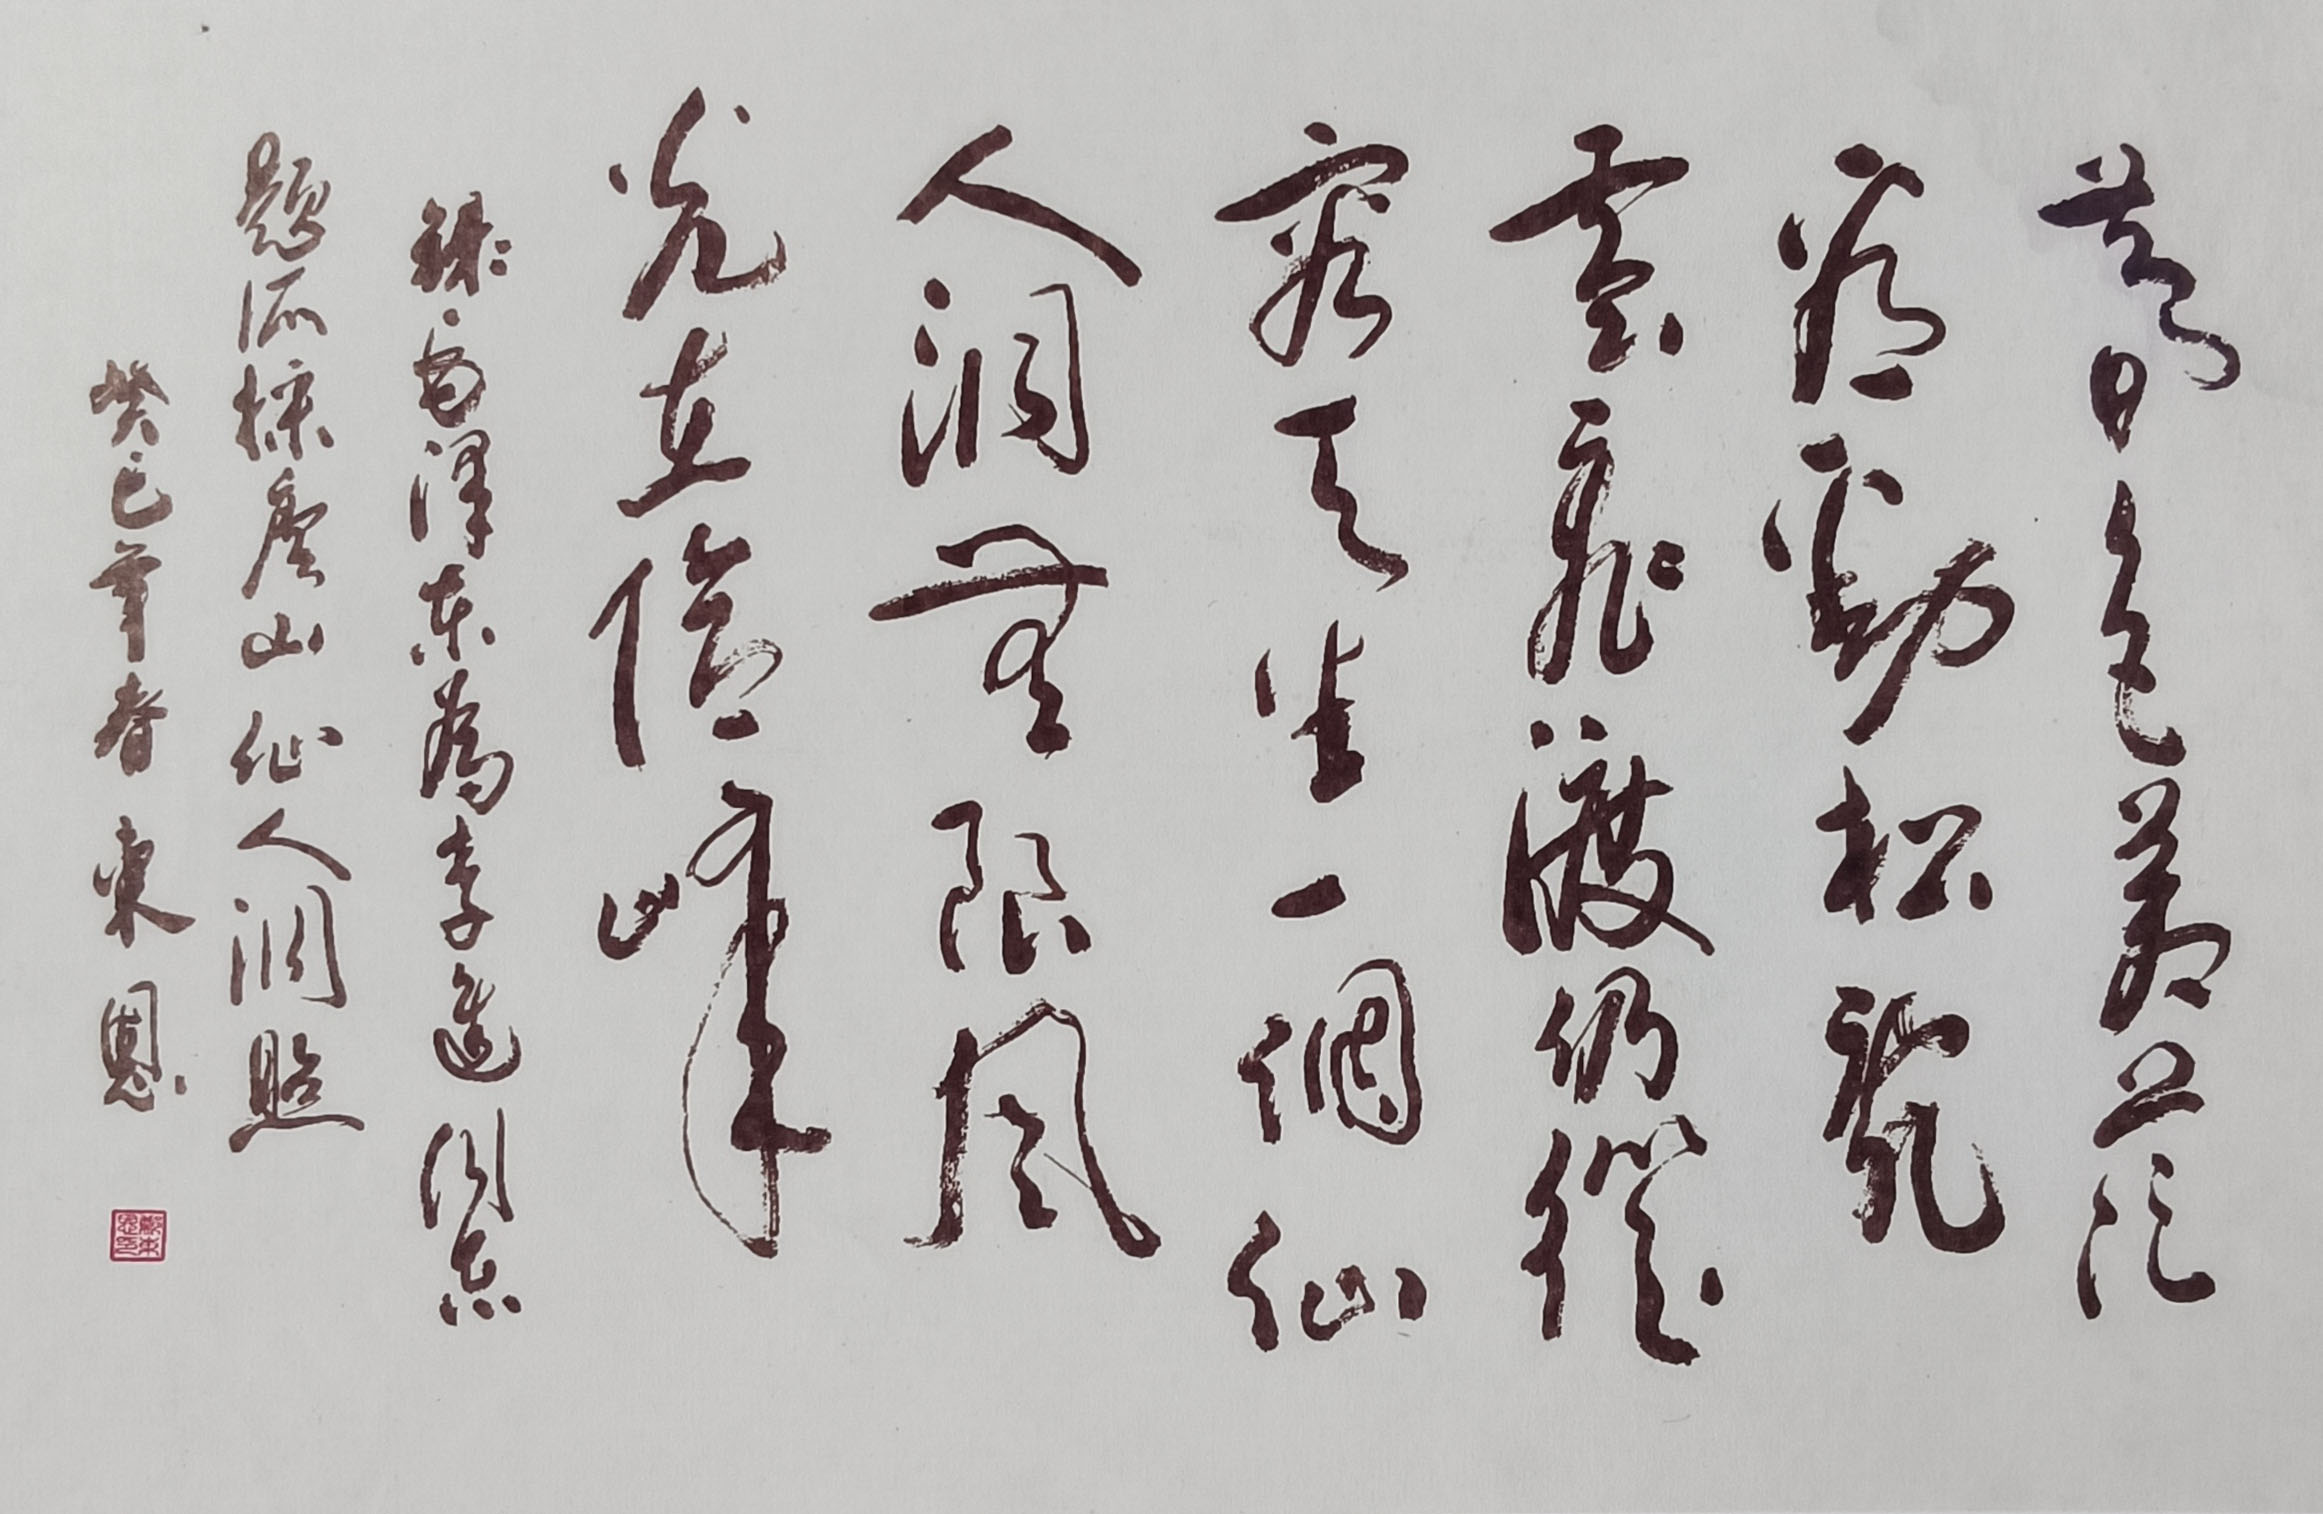 暮色蒼茫
看勁松亂
雲飛渡仍從
容天生一個仙
人洞無限風
光在險峰
錄毛澤東為李進同志
題所攝廬山仙人洞照
癸巳年春東恩